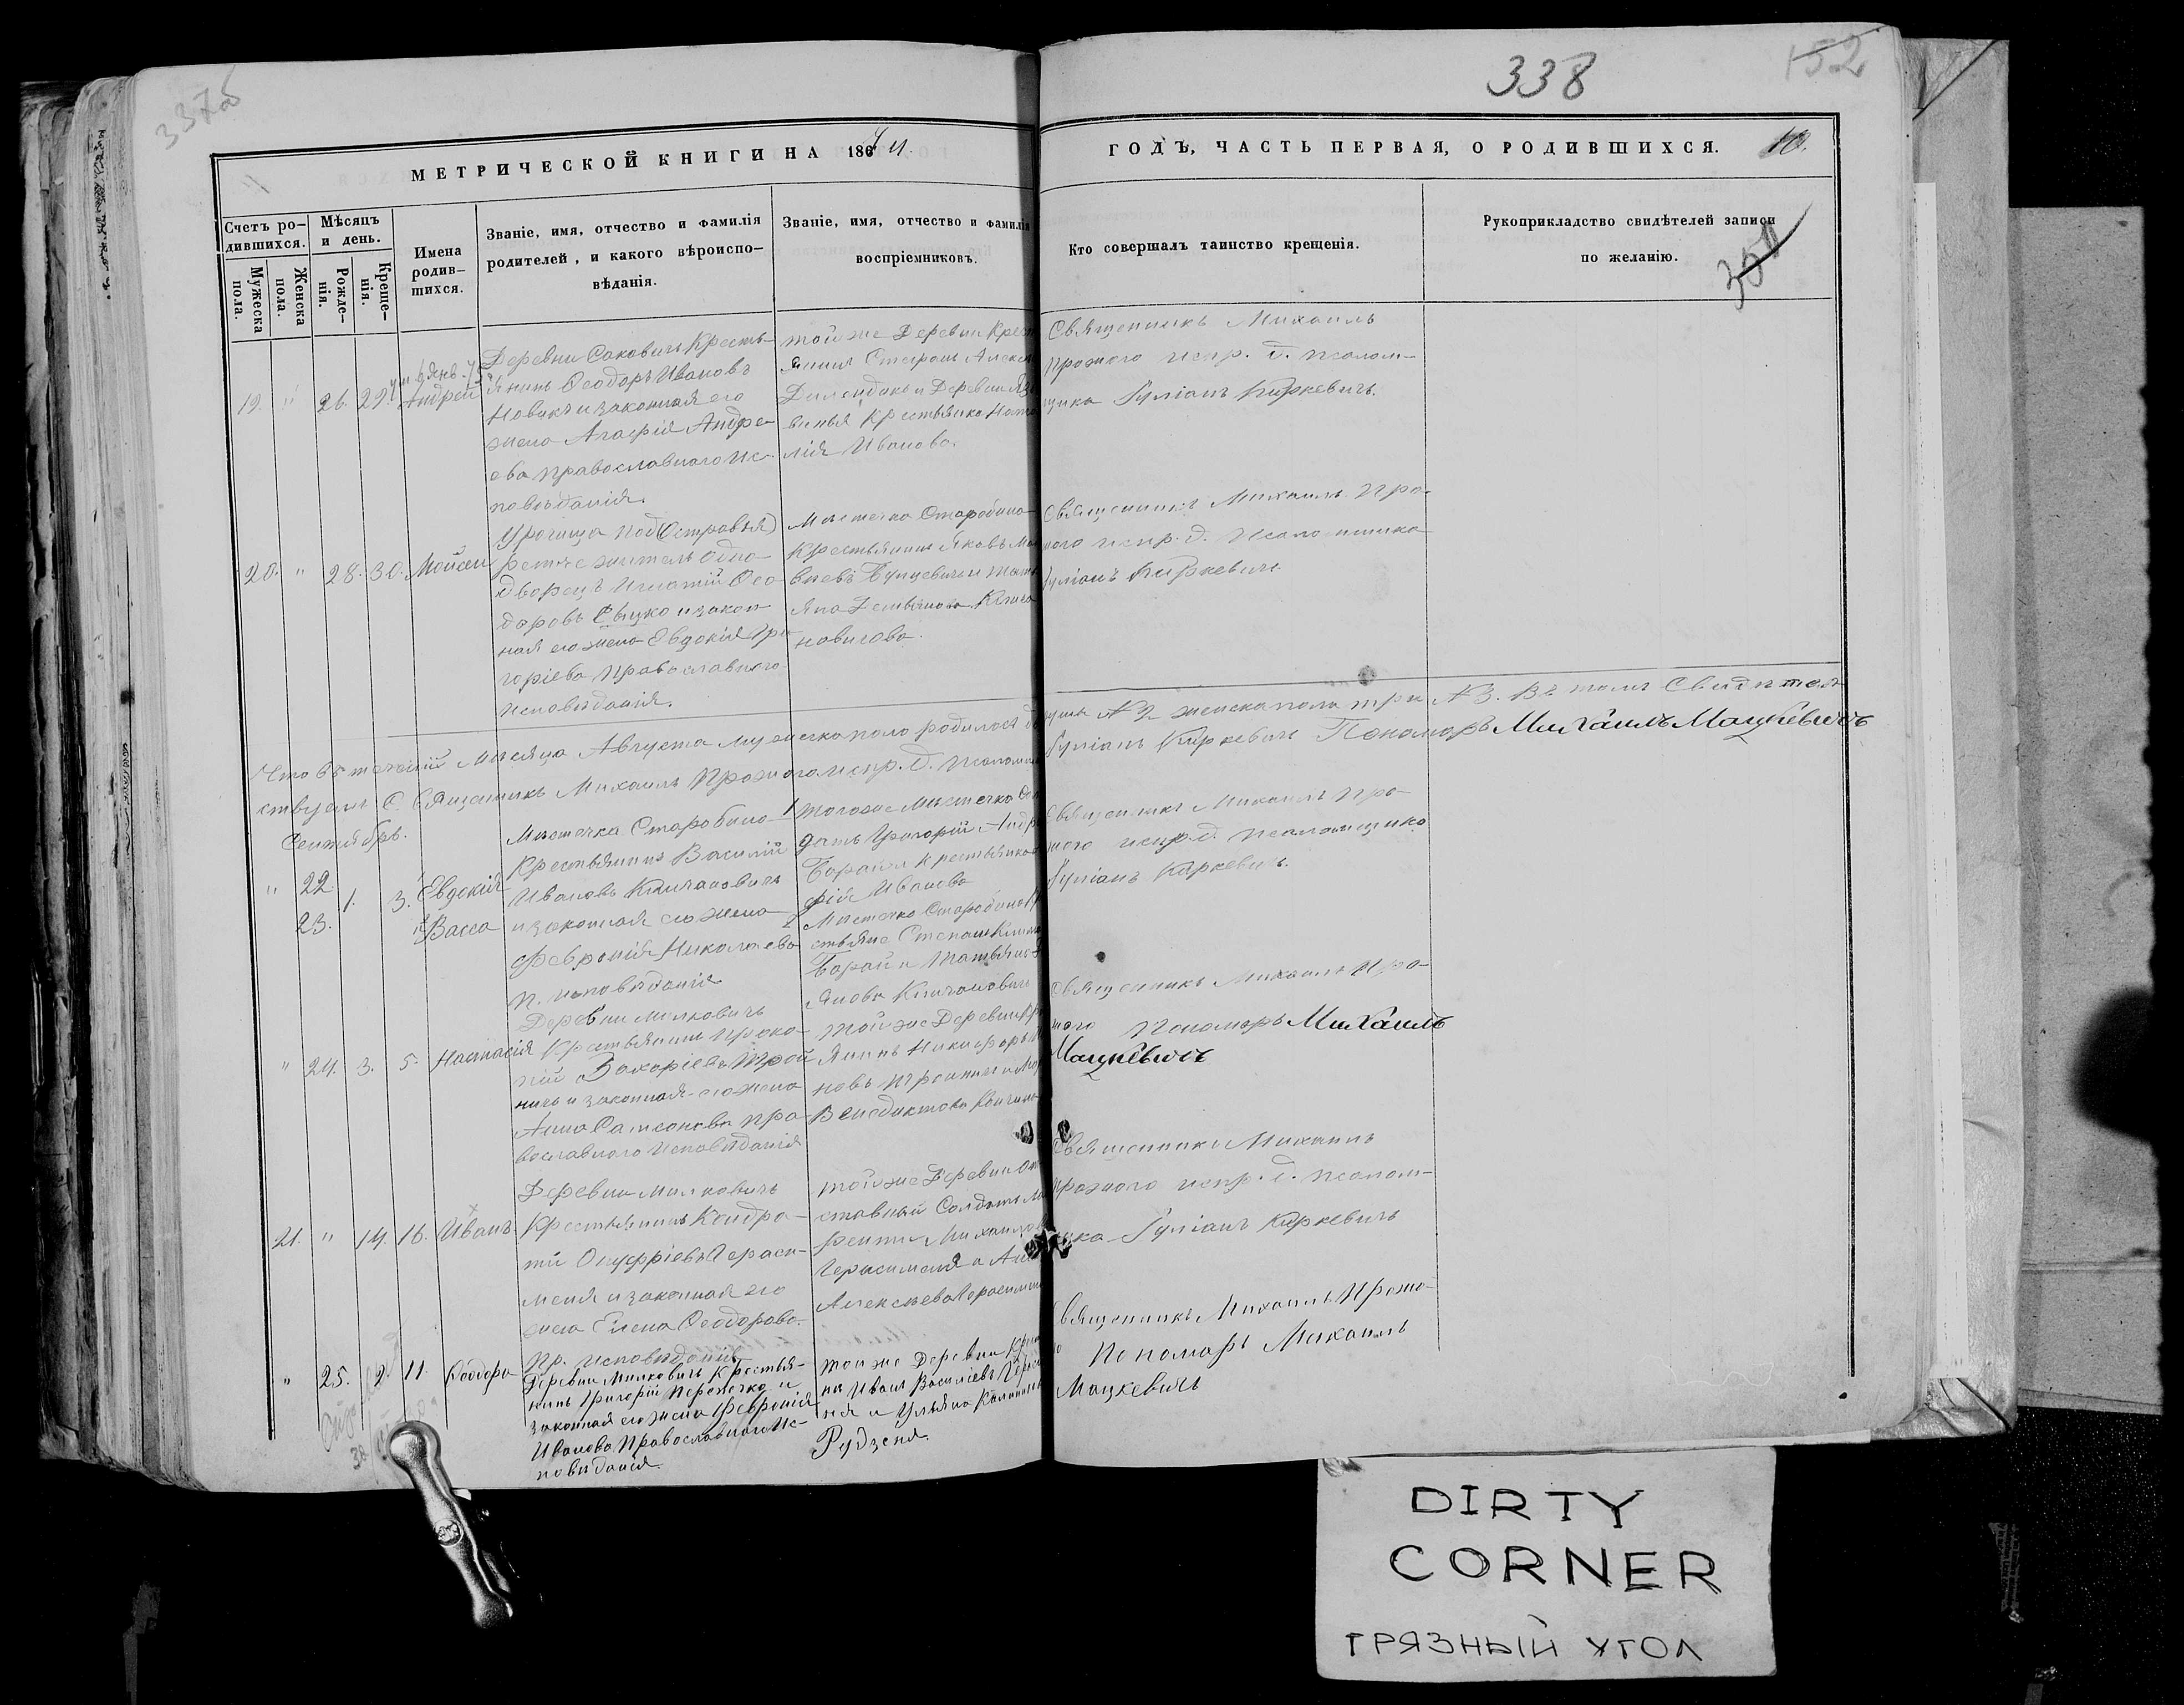 337об
338
152
МЕТРИЧЕСКОЙ КНИГИ НА 1867
ГОДЪ, ЧАСТЬ ПЕРВАЯ, О РОДИВШИХСЯ.
10.
Счетъ ро-
дившихся.
Мужеска
пола.
Женска
пола.
Мѣсяцъ
и день.
Рожде-
нія.
Креще-
нія.
Имена
родив-
шихся.
Званіе, имя, отчество и фамилія
родителей, и какого вѣроиспо-
вѣданія.
Званіе, имя, отчество и фамилія
воспріемниковъ.
Кто совершалъ таинство крещенія.
Рукоприкладство свидѣтелей записи
по желанію.
19. " 26. 29. Андрей
Деревни Саковичъ Кресть-
янинъ Ѳеодоръ Ивановъ
Новикъ и законная его
жена Агафія Андре-
ева православнаго ис-
повѣданія.
той же Деревни Крест
янинъ Стефанъ Алекс
и Деревни
Крестьянка Ната
лія Иванова.
Священникъ Михаилъ
Прожого испр. д. псалом-
щика Іуліанъ Киркевичъ.
20. " 28. 30. Мойсей
Урочища подъ
житель Одно-
дворецъ Игнатій Ѳео-
доровъ и закон-
ная его жена Евдокія Гри
горіева Православнаго
исповѣданія.
Мѣстечка Старобина
Крестьянинъ Яковъ
и Тать
яна Демьянова Клича
новичова.
Священникъ Михаилъ Про-
жого испр. д. Псаломщика
Іуліанъ Киркевичъ
Что въ теченіи Мѣсяца Августа мужеска пола родилось д
души N 2 женска пола три N 3. Въ томъ Свидѣтел
ствуемъ С. Священникъ Михаилъ Прожого испр. д. Псалом
Іуліанъ Киркевичъ Пономарь Михаилъ Мацкевичъ
Сентябрь.
" 22. 1. 3. Евдокія
23. и Васса
Мѣстечка Старобина
Крестьянинъ Василій
Ивановъ Кличановичъ
и законная его жена
Февронія Николаева
п. исповѣданія
1 тогоже Мѣстечка
Григорій Андр
Барай и крестьянка
фія Иванова
2 Мѣстечка Старобина
стьяне Стефанъ
Барай и Татьяна
Кличановичъ
Священникъ Михаилъ Про-
жого испр. д. псаломщика
Іуліанъ Киркевичъ.
" 24. 3. 5. Настасія
Деревни Милковичъ
Крестьянинъ Проко-
пій Захаріевъ
и законная его жена
Анна Самсонова пра-
вославнаго исповѣданія
той же Деревни Кр
янинъ Никифоръ
новъ
Венедиктова
Священникъ Михаилъ Про-
жого Пономарь Михаилъ
Мацкевичъ
21. " 14. 16. Иванъ
Деревни Милковичъ
Крестьянинъ Кондра-
тій Онуфріевъ Гераси-
меня и законная его
жена Елена Ѳеодорова.
Пр. исповѣданія
той же Деревни От
ставный Солдатъ
Михайлов
Герасименя и
Алексѣева Герасимен
Священникъ Михаилъ
Прожого испр. д. псалом-
щика Іуліанъ Киркевичъ
" 25. 9. 11. Ѳеодора
Деревни Милковичъ Крестья-
нинъ Григорій Перепечко и
законная его жена Февронія
Иванова Православнаго Ис-
повѣданія.
той же Деревни Крест
нъ Иванъ Василіевъ
и Ульяна
Рудзеня.
Священникъ Михаилъ Прожо-
го Пономарь Михаилъ
Мацкевичъ
DIRTY
CORNER
ГРЯЗНЫЙ УГОЛ